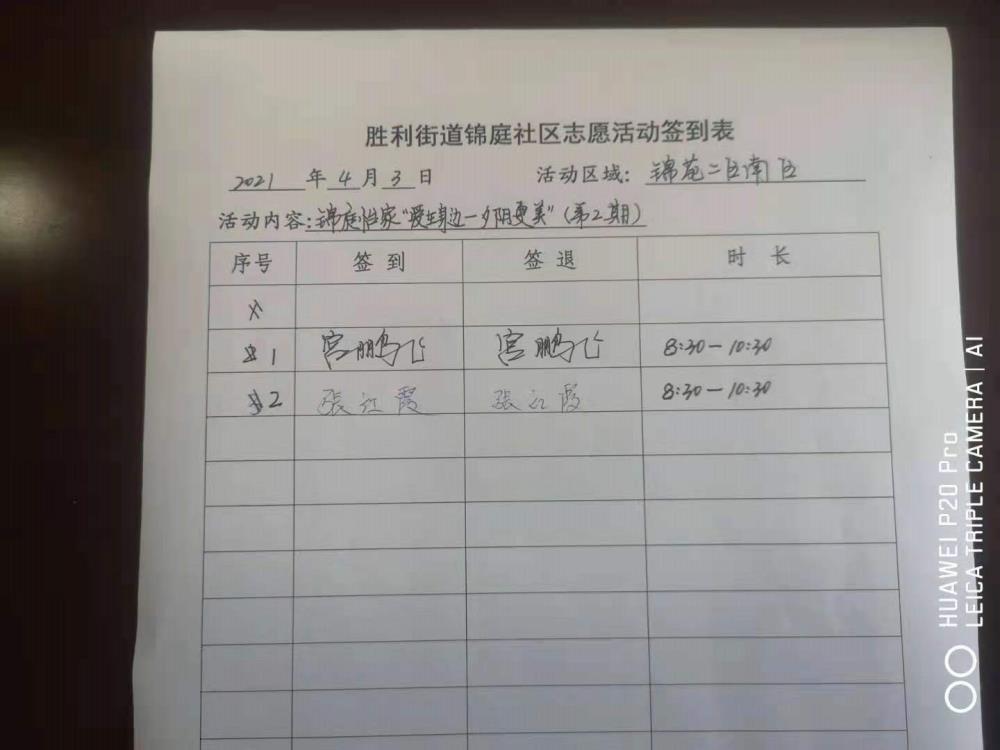 胜利街道锦庭社区志愿活动签到表
2021 年 4 月 3 日 活动区域: 锦苑二区南区
活动内容: 锦庭性家“爱在身边一夕阳更美”(第2期)
序号 签到 签退 时长
1 宫鹏飞 宫鹏飞 8:30-10:30
2 张红霞 张红霞 8:30-10:30
HUAWEI P20 Pro
LEICA TRIPLE CAMERA | AI